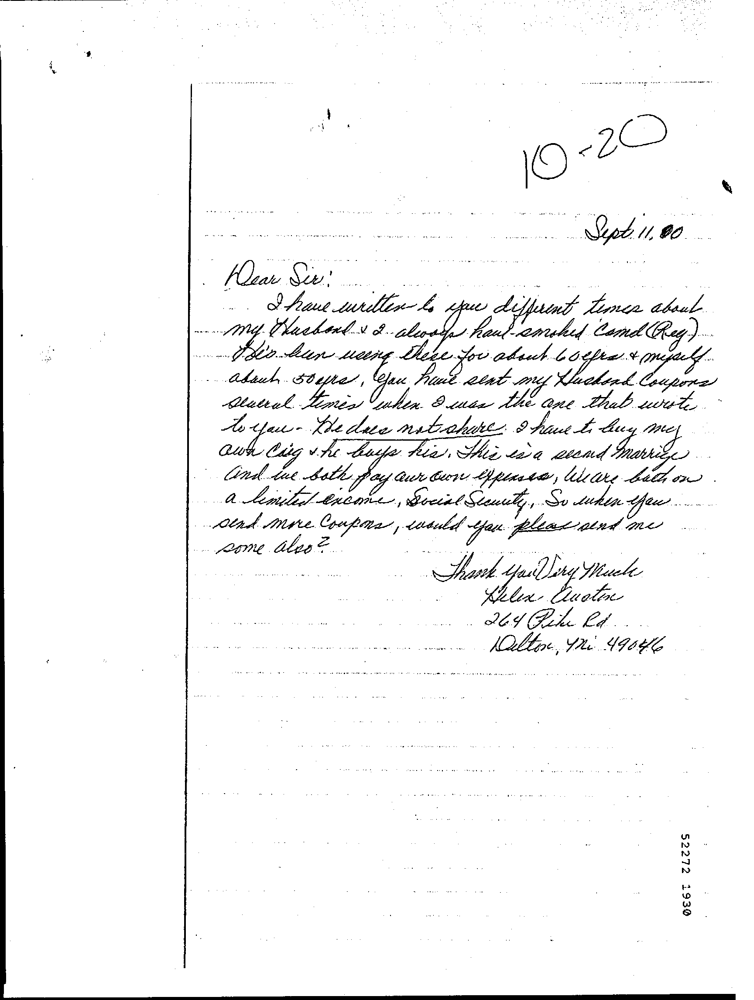 10-20
Sept. 11, 00
Dear Sir:
I have written to you different times about
my Husband & I always have smoked Camel (Reg)
He's been using these for about 60 yrs & myself
about 50 yrs, You have sent my Husband Coupons
several times when I was the one that wrote
to you - He does not share. I have to buy my
own Cig & he buys his. This is a second marriage
and we both pay our own expenses, We are both on
a limited income, Social Security, So when you
send more Coupons, would you please send me
some also?
Thank You Very Much
Helen Austin
264 Pike Rd
Delton, Mi 49046
52272 1930